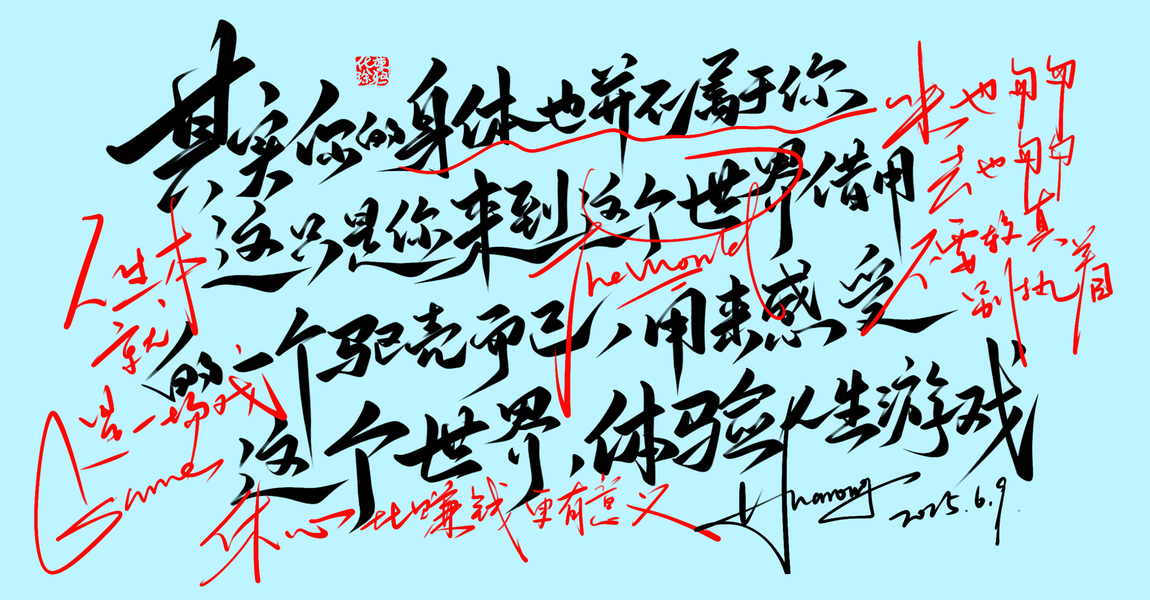 其实你的身体也并不属于你
这只是你来到这个世界借用
的一个驱壳而已，用来感受
这个世界，体验人生游戏
来也匆匆
去也匆匆
不要较真
别执着
The world
人生本
就
是一场戏
Game
修心比赚钱更有意义
2025.6.9